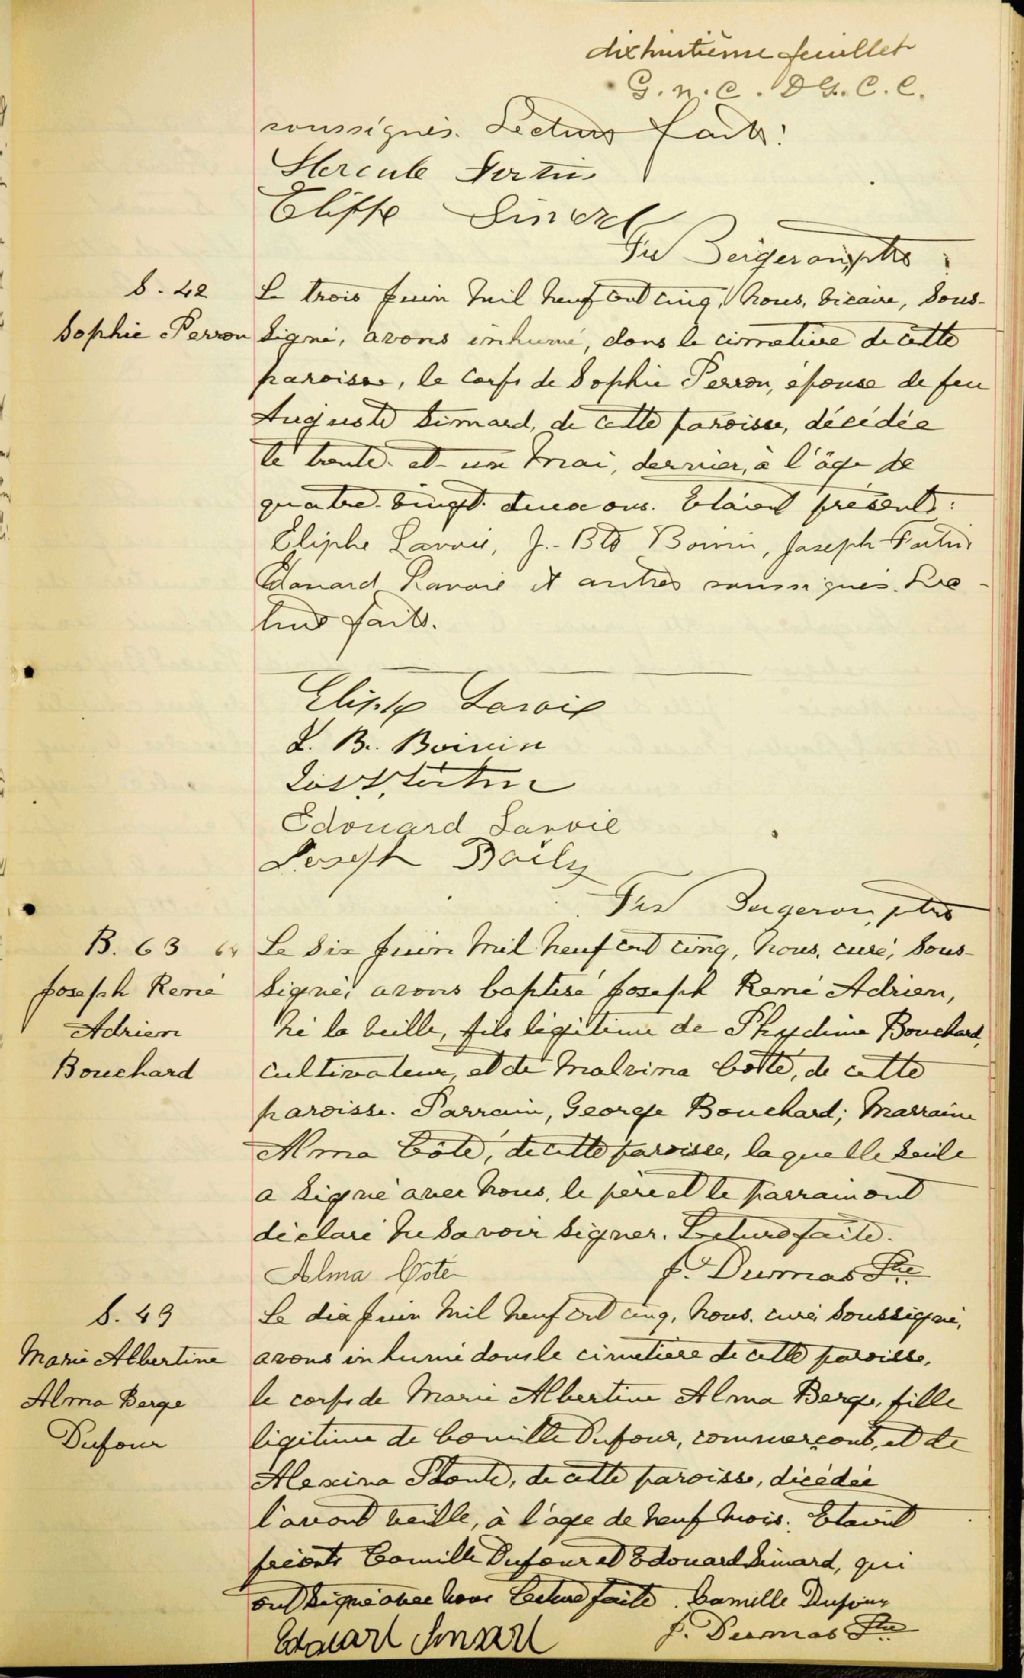 dix huitième feuillet
G. N. C. D G. C. C.
soussignés. Lecture faite.
Hercule Fortin
Elippe Simard
Frs Bergeron, ptre
S. 42
Sophie Perron
Le trois Juin mil neuf cent cinq, nous, vicaire, sous-
signé, avons inhumé, dans le cimetière de cette
paroisse, le corps de Sophie Perron, épouse de feu
Auguste Simard, de cette paroisse, décédée
le trente et un Mai, dernier, à l'âge de
quatre-vingt-deux ans. Etaient présents:
Eliphe Lavoie, J.-Bte Boivin, Joseph Fortin
Edouard Lavoie et autres soussignés. Lec-
ture faite.
Elippe Lavoie
J. B. Boivin
Jos Fortin
Edouard Lavoie
Joseph Baily
Frs Bergeron, ptre
B. 63 64
Joseph René
Adrien
Bouchard
Le six Juin mil neuf cent cinq, nous, curé, sous-
signé, avons baptisé Joseph René Adrien,
né la veille, fils légitime de Phydime Bouchard,
cultivateur, et de Malvina Côté, de cette
paroisse. Parrain, George Bouchard; Marraine
Alma Côté, de cette paroisse, laquelle seule
a signé avec nous, le père et le parrain ont
déclaré ne savoir signer. Lecture faite.
Alma Côté
J. Dumas Ptre
S. 43
Marie Albertine
Alma Berge
Dufour
Le dix Juin mil neuf cent cinq, nous, curé soussigné,
avons inhumé dans le cimetière de cette paroisse,
le corps de Marie Albertine Alma Berge, fille
légitime de Camille Dufour, commerçant, et de
Alexina Plante, de cette paroisse, décédée
l'avant veille, à l'âge de neuf mois. Etaient
présents Camille Dufour et Edouard Simard, qui
ont signé avec nous Lecture faite. Camille Dufour
Edouard Simard
J. Dumas Ptre